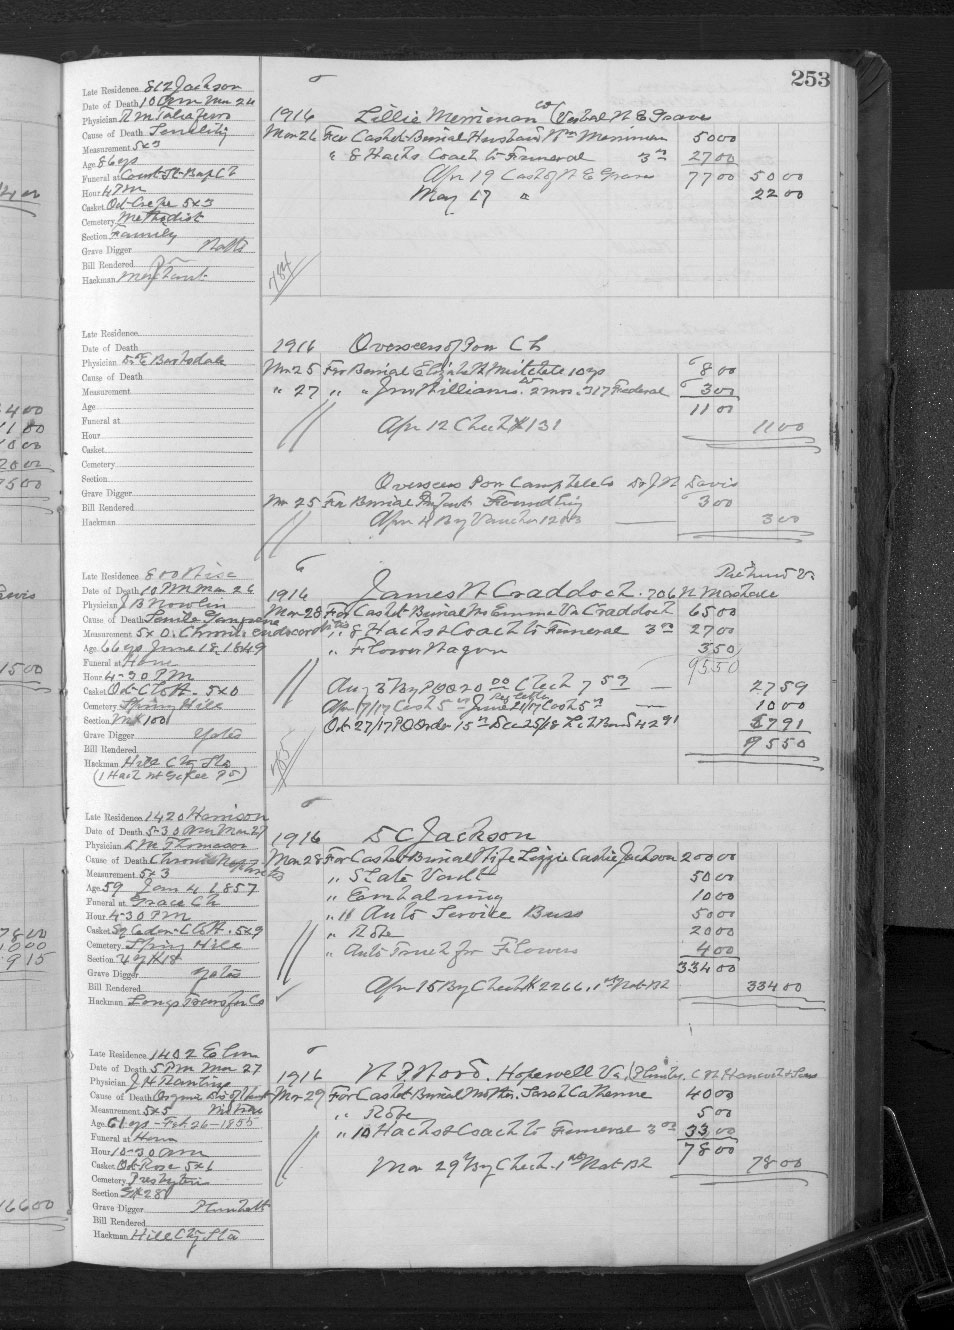 253
Late Residence 812 Jackson
Date of Death 10 Mar 24
Physician
Cause of Death Senility
Measurement 5x3
Age 86 ys
Funeral at Court St Bap Ch
Hour 4 PM
Casket Oct Crepe 5x3
Cemetery Methodist
Section Family
Grave Digger
Bill Rendered
Hackman
1916 Lillie Merriman
Mar 26 For Casket & Burial Husband Wm Merriman 50 00
" 8 Hacks Coach to Funeral 3 00 27 00
Apr 19 Cash 77 00 50 00
May 17 " 22 00
Late Residence
Date of Death
Physician Barksdale
Cause of Death
Measurement
Age
Funeral at
Hour
Casket
Cemetery
Section
Grave Digger
Bill Rendered
Hackman
1916 Overseers of Poor
Mar 25 For Burial Elizabeth 10 ys 8 00
" 27 " " Jno Williams 2 mos. 317 Federal 3 00
11 00
Apr 12 Check # 131 11 00
Overseers Poor Campbell Co Davis
Mar 25 For Burial Infant Foundling 3 00
Apr 4 By Voucher 3 00
Late Residence 800 Wise
Date of Death 10 PM Mar 26
Physician J B Nowlin
Cause of Death Senile Gangrene
Measurement 5x0. Chronic endocarditis
Age 66 ys June 18, 1849
Funeral at Home
Hour 4-30 PM
Casket Oct Cloth 5x0
Cemetery Spring Hill
Section
Grave Digger Yates
Bill Rendered
Hackman Hill City Sta
1916 James W Craddock. 706 N
Mar 28 For Casket Burial Mrs Emma Va Craddock 65 00
" 8 Hacks & Coach to Funeral 3 00 27 00
" Flower Wagon 3 50
95 50
Aug 3 By P O O 20 00 Check 7 59 — 27 59
Apr 17/17 Cash 5 00 June 21/17 Cash 5 00 — 10 00
Oct 27/17 P O Order 15 00 Dec 25/18 42 91 57 91
95 50
Late Residence 1420 Harrison
Date of Death 5-30 Mar 27
Physician Thomason
Cause of Death Chronic Nephritis
Measurement 5x3
Age 59 Jan 4 1857
Funeral at Grace Ch
Hour 4-30 PM
Casket Cloth. 5x9
Cemetery Spring Hill
Section
Grave Digger Yates
Bill Rendered
Hackman Longs Transfer Co
1916 S C Jackson
Mar 28 For Casket & Burial Wife Lizzie Jackson 200 00
" Slate Vault 50 00
" Embalming 10 00
" Auto Service Buss 50 00
" Robe 20 00
" Auto Truck for Flowers 4 00
334 00
Apr 15 By Check # 2266, 1st Nat Bk 334 00
Late Residence 1402 Elm
Date of Death 5 PM Mar 27
Physician
Cause of Death Organic Dis of Heart
Measurement 5x5
Age 61 ys - Feb 26 - 1855
Funeral at Home
Hour 10-30 am
Casket Oct Rose 5x6
Cemetery Presbyterian
Section
Grave Digger
Bill Rendered
Hackman Hill City Sta
1916 Hopewell Va.
Mar 29 For Casket Burial Mother, Sarah Catherine 40 00
" Robe 5 00
" 10 Hacks & Coach to Funeral 3 00 33 00
78 00
Mar 29 By Check 1st Nat Bk 78 00